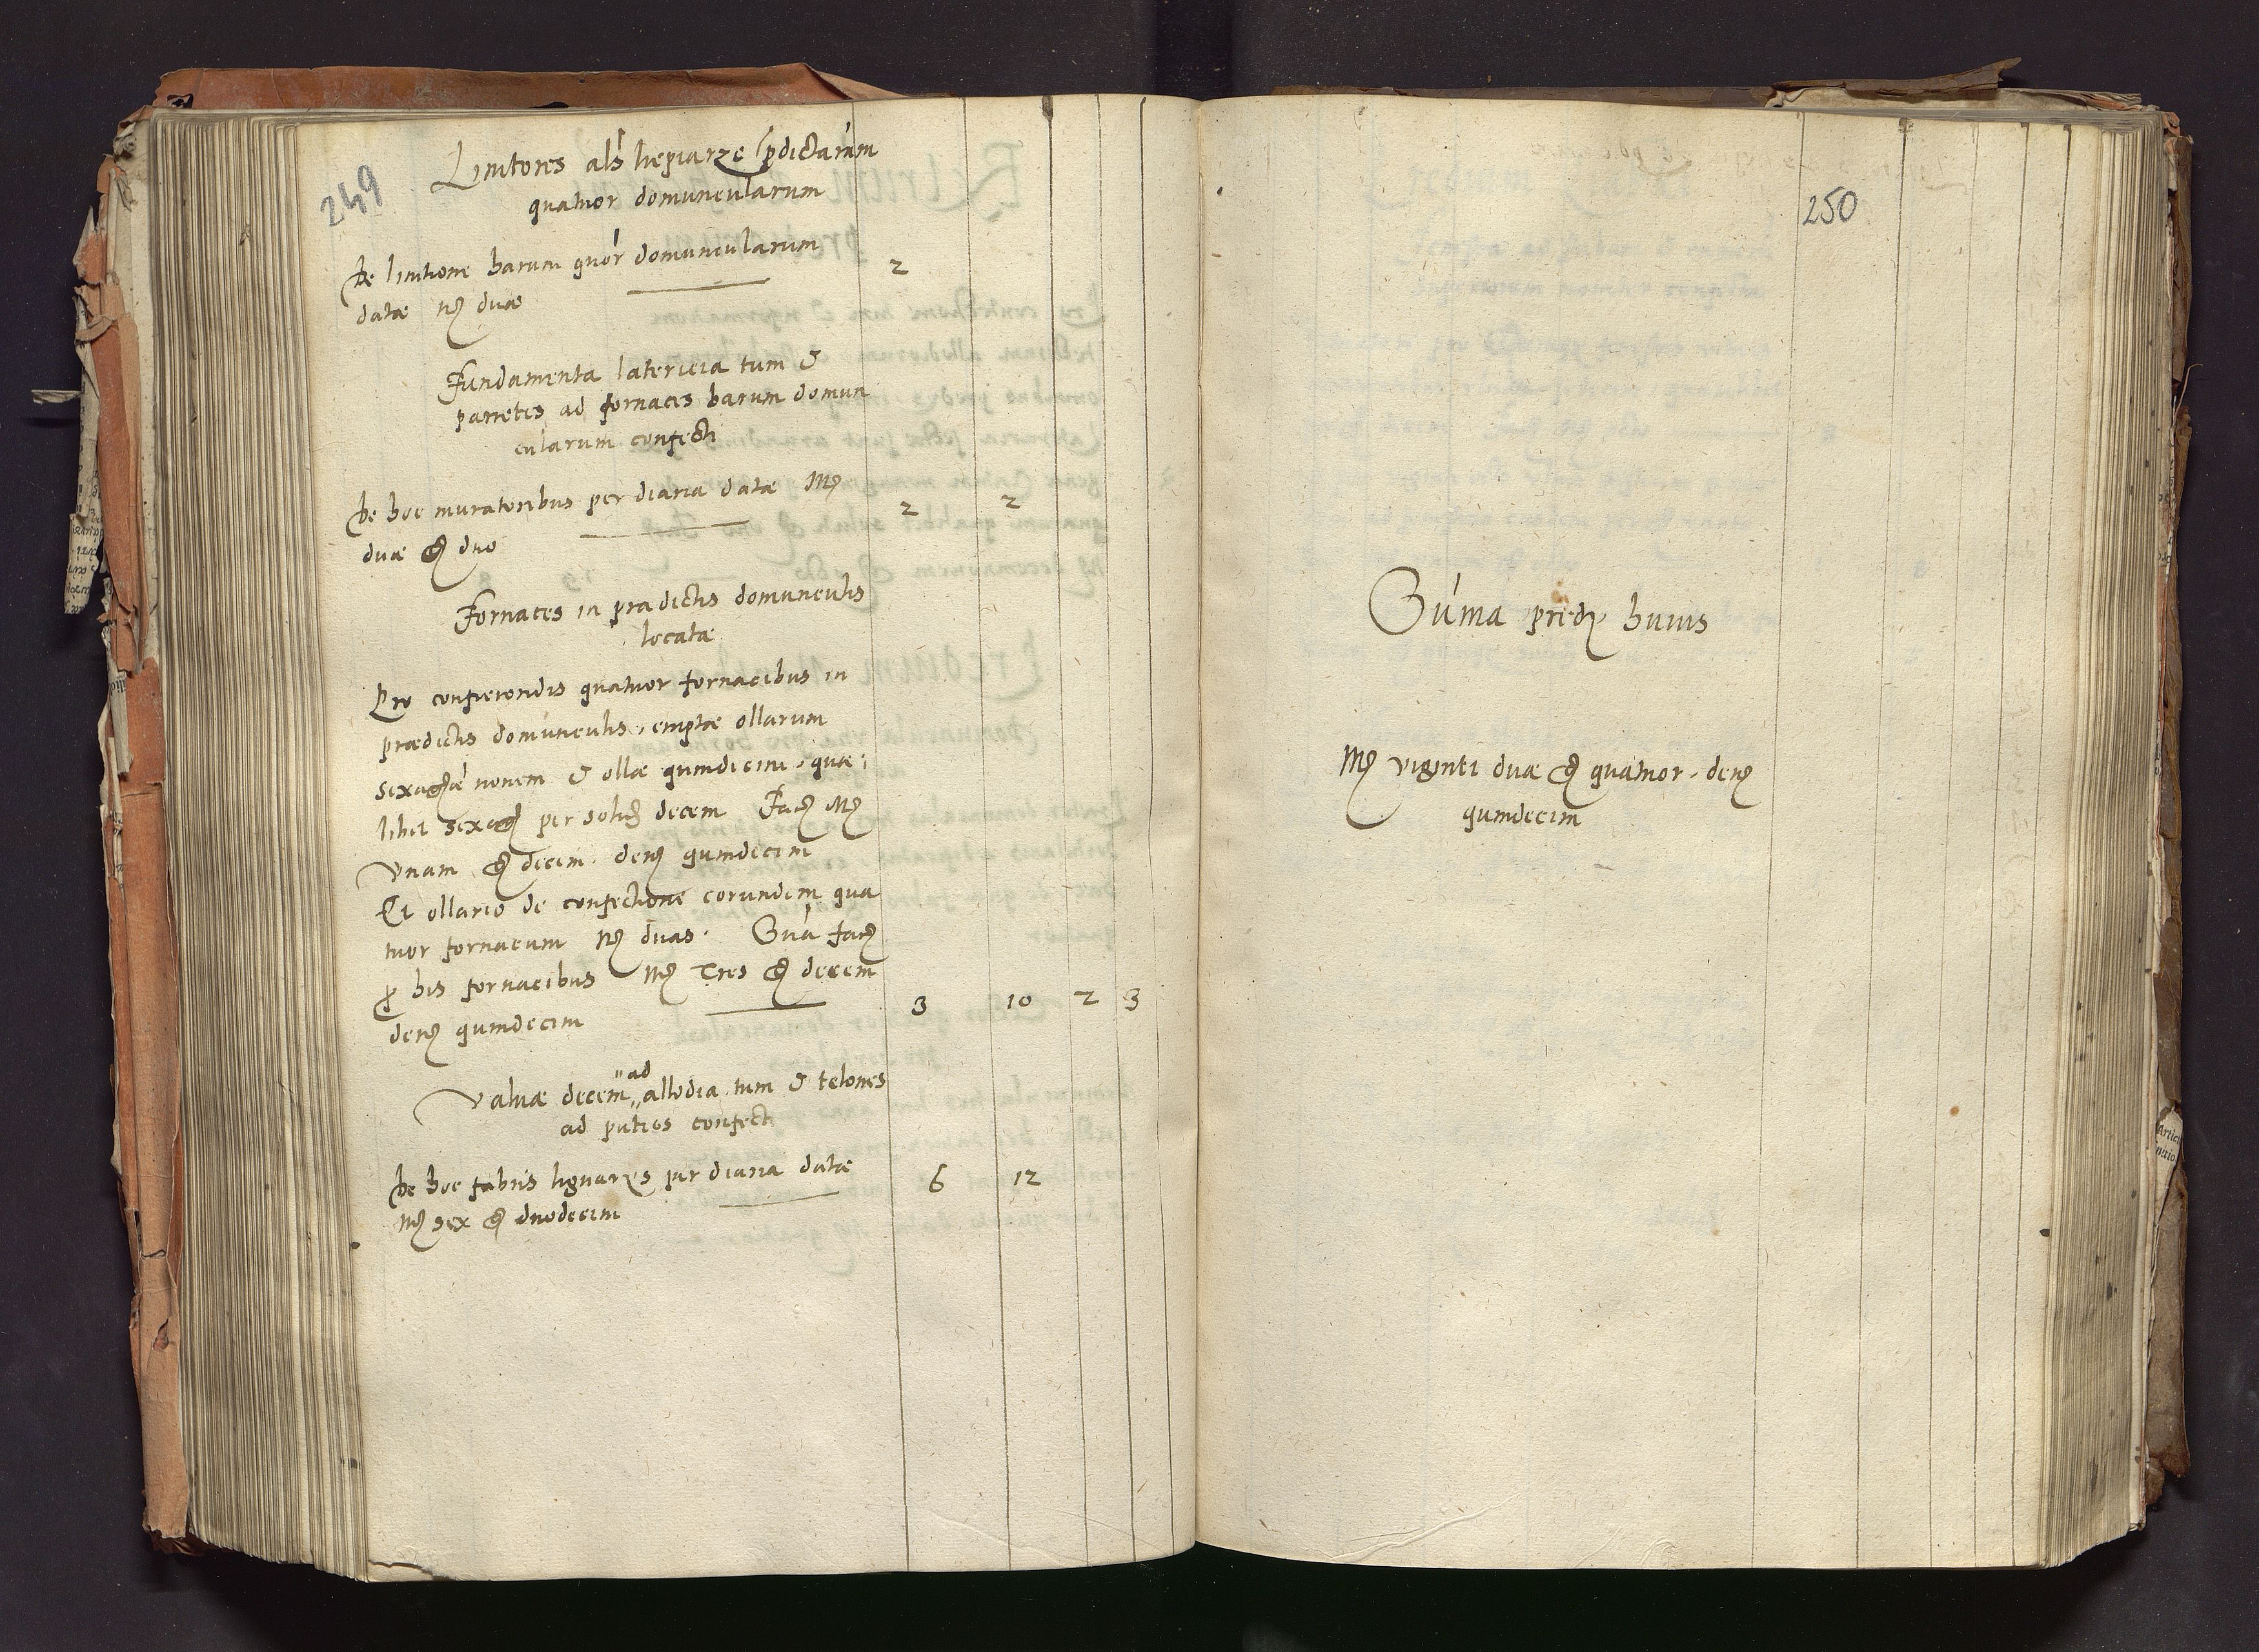 249
Linitores als hepiarze p̱dictarum
quatuor domuncularum
De linitione harum quor domuncularum
datæ Mr̃ duæ
2
Fundamenta latericia tum &
parietes ad fornaces harum domun
cularum confecti
De hoc muratoribus per diaria datæ Mr̃
duæ gr̃ duo
2 2
Fornaces in prædictis domunculis
locatæ
Pro conficiendis quatuor fornacibus in
prædictis domunculis, emptæ ollarum
sexagẽæ novem & ollæ quindecim, quæ
libet sexag̃ per solid̃ decem Facĩ Mr̃
Unam gr̃ decem denr̃ quindecim
Et ollario de confectione eorundem qua
tuor fornacum Mr̃ duas. Sũa facĩ
p̱ his fornacibus Mr̃ Tres gr̃ decem
denr̃ quindecim
3 10 2 3
Valvæ decem "ad" allodia tum & telones
ad puteos confecti
De hoc fabris lignarys per diaria datæ
Mr̃ sex gr̃ duodecim
6 12
250
Sũma prædr̃ huius
Mr̃ viginti duæ gr̃ quatuor, denr̃
quindecim